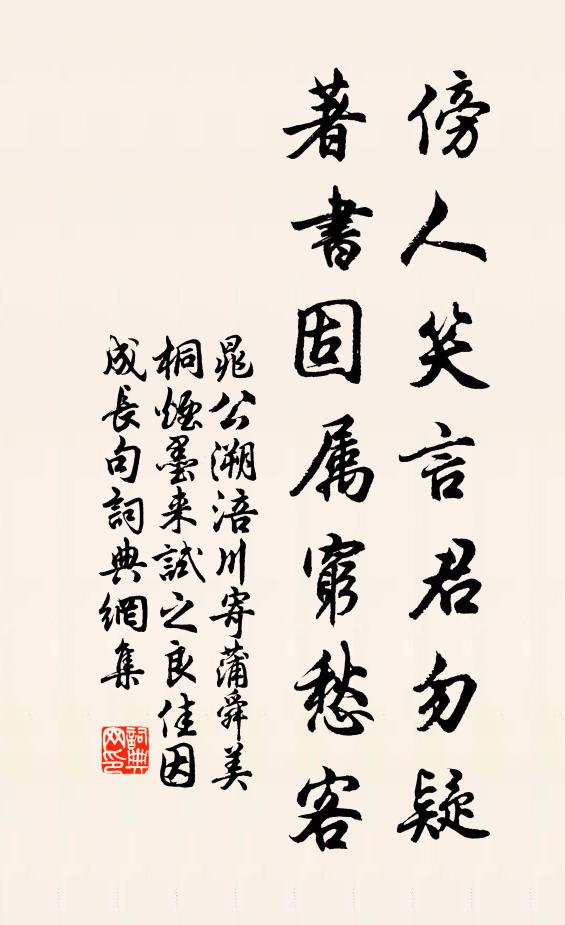 傍人笑言君勿疑
著書固属窮愁客
晁公溯涪川寄蒲舜美
桐煙墨来試之良佳因
成長句詞典網集
詞典网印